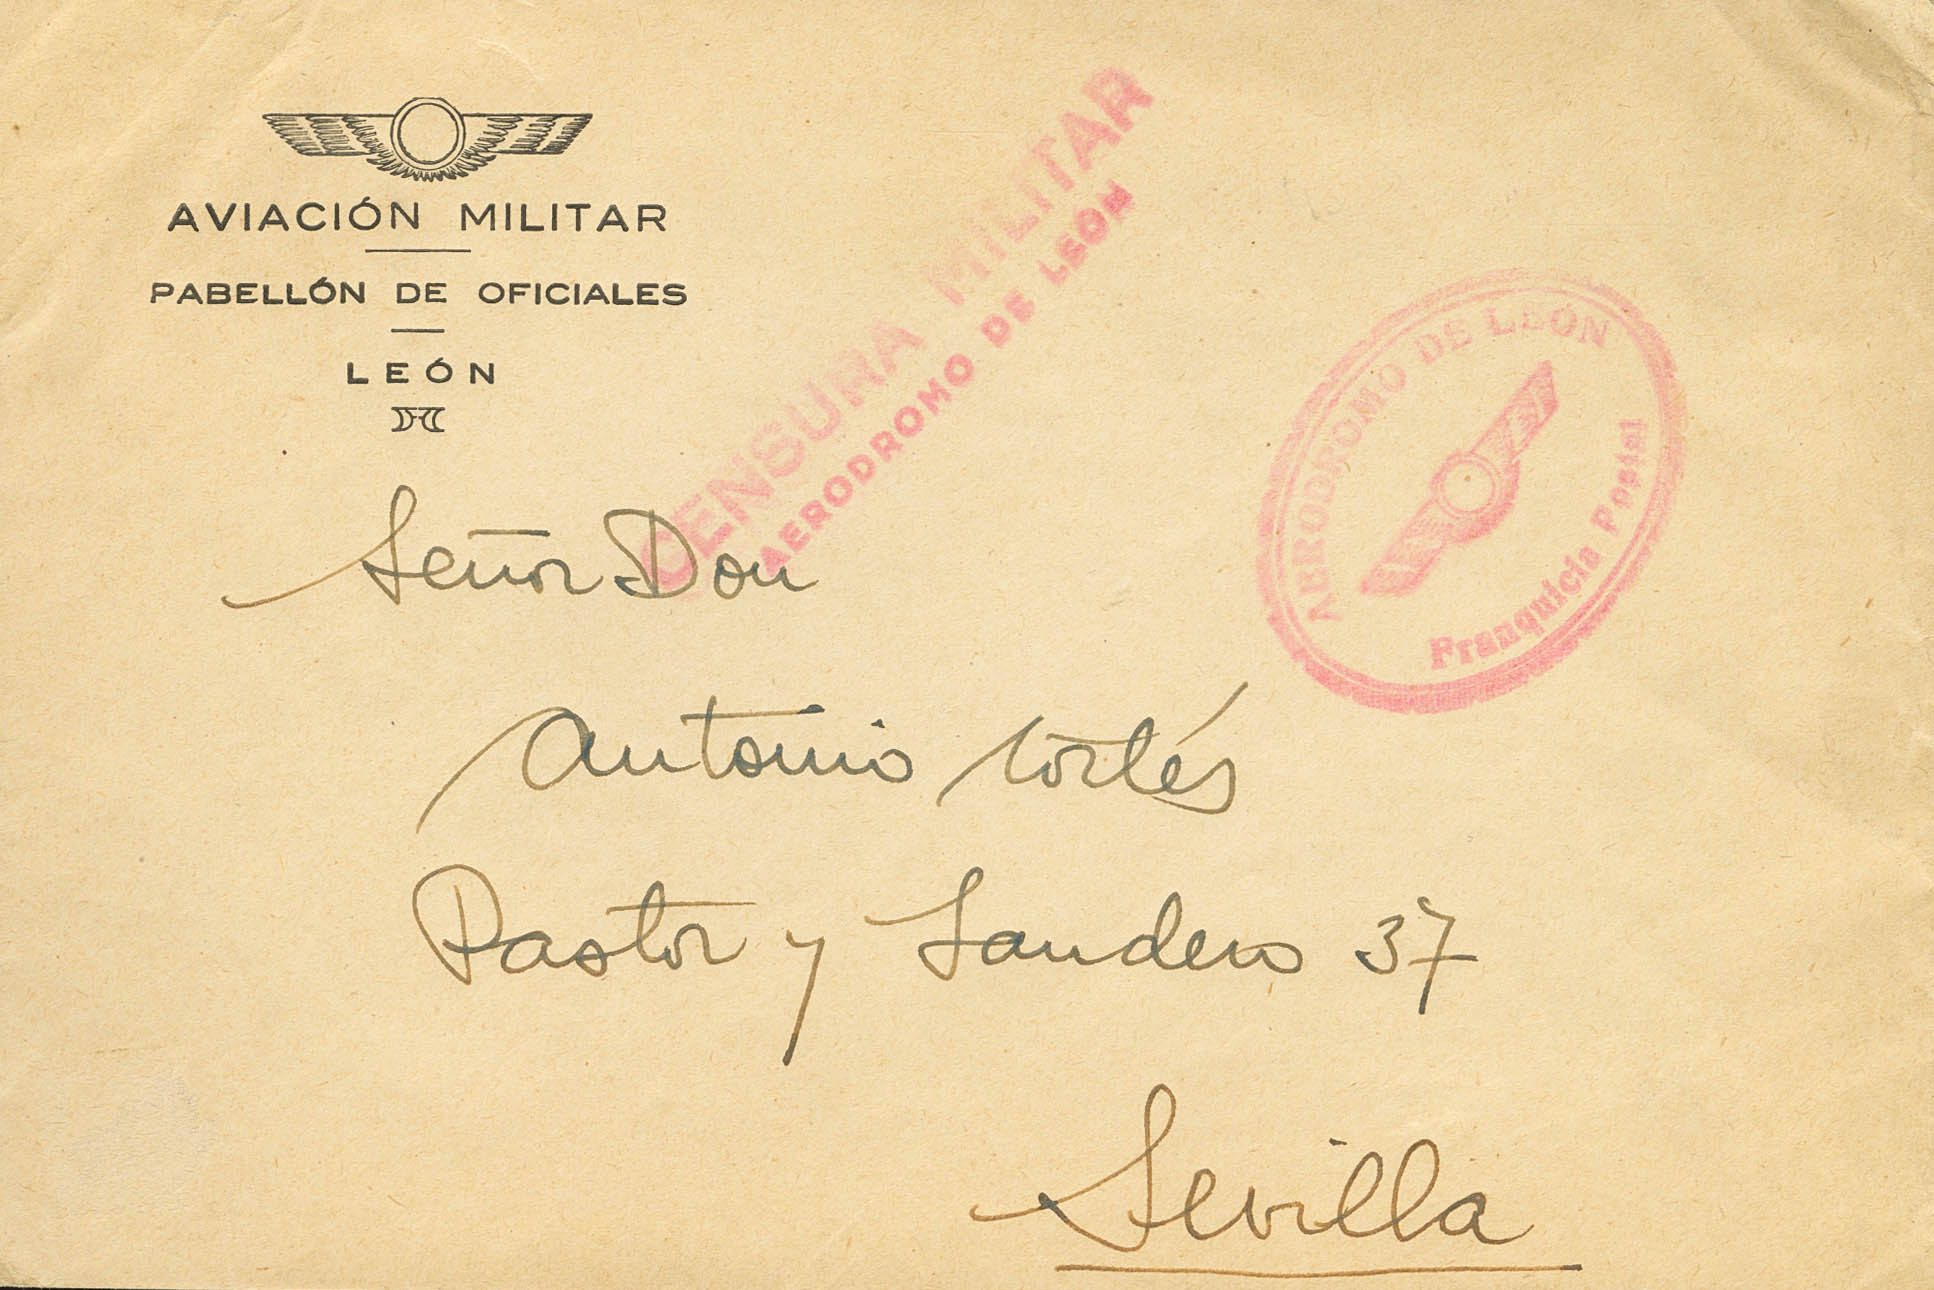 AVIACIÓN MILITAR
PABELLÓN DE OFICIALES
LEÓN
CENSURA MILITAR
AERODROMO DE LEON
AERODROMO DE LEÓN
Franquicia Postal
Señor Don
Antonio Cortés
Pastor y Landero 37
Sevilla